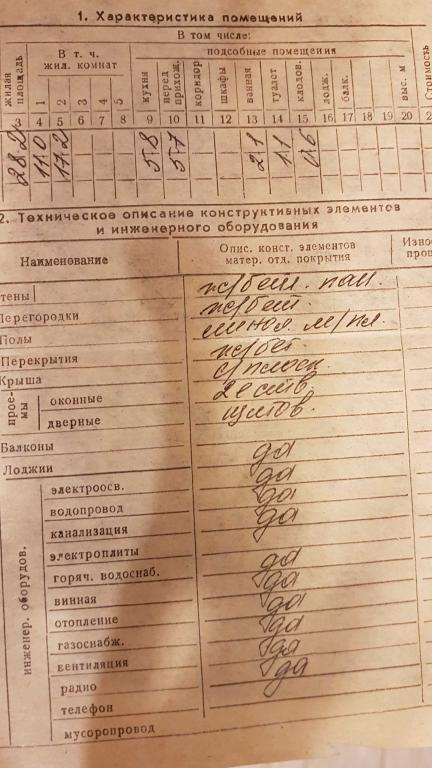 1. Характеристика помещений
жилая площадь
В т. ч. жил. комнат
В том числе:
подсобные помещения
1 2 3 4 5
кухня
перед прихож.
коридор
шкафы
ванная
туалет
кладов.
лодж.
балк.
выс. м
Стоимость
3 4 5 6 7 8 9 10 11 12 13 14 15 16 17 18 19 20 2
28.2 11.0 17.2 5.8 5.7 2.1 1.1 0.6
2. Техническое описание конструктивных элементов
и инженерного оборудования
Наименование
Опис. конст. элементов
матер. отд. покрытия
Изно
проц
тены ж/бет. пан.
Перегородки ж/бет.
Полы линол. м/пл.
Перекрытия ж/бет.
Крыша
прое-
мы
оконные 2е ств.
дверные щитов.
Балконы
Лоджии да
инженер. оборудов.
электроосв. да
водопровод да
канализация да
электроплиты
горяч. водоснаб. да
винная да
отопление да
газоснабж. да
вентиляция да
радио да
телефон
мусоропровод